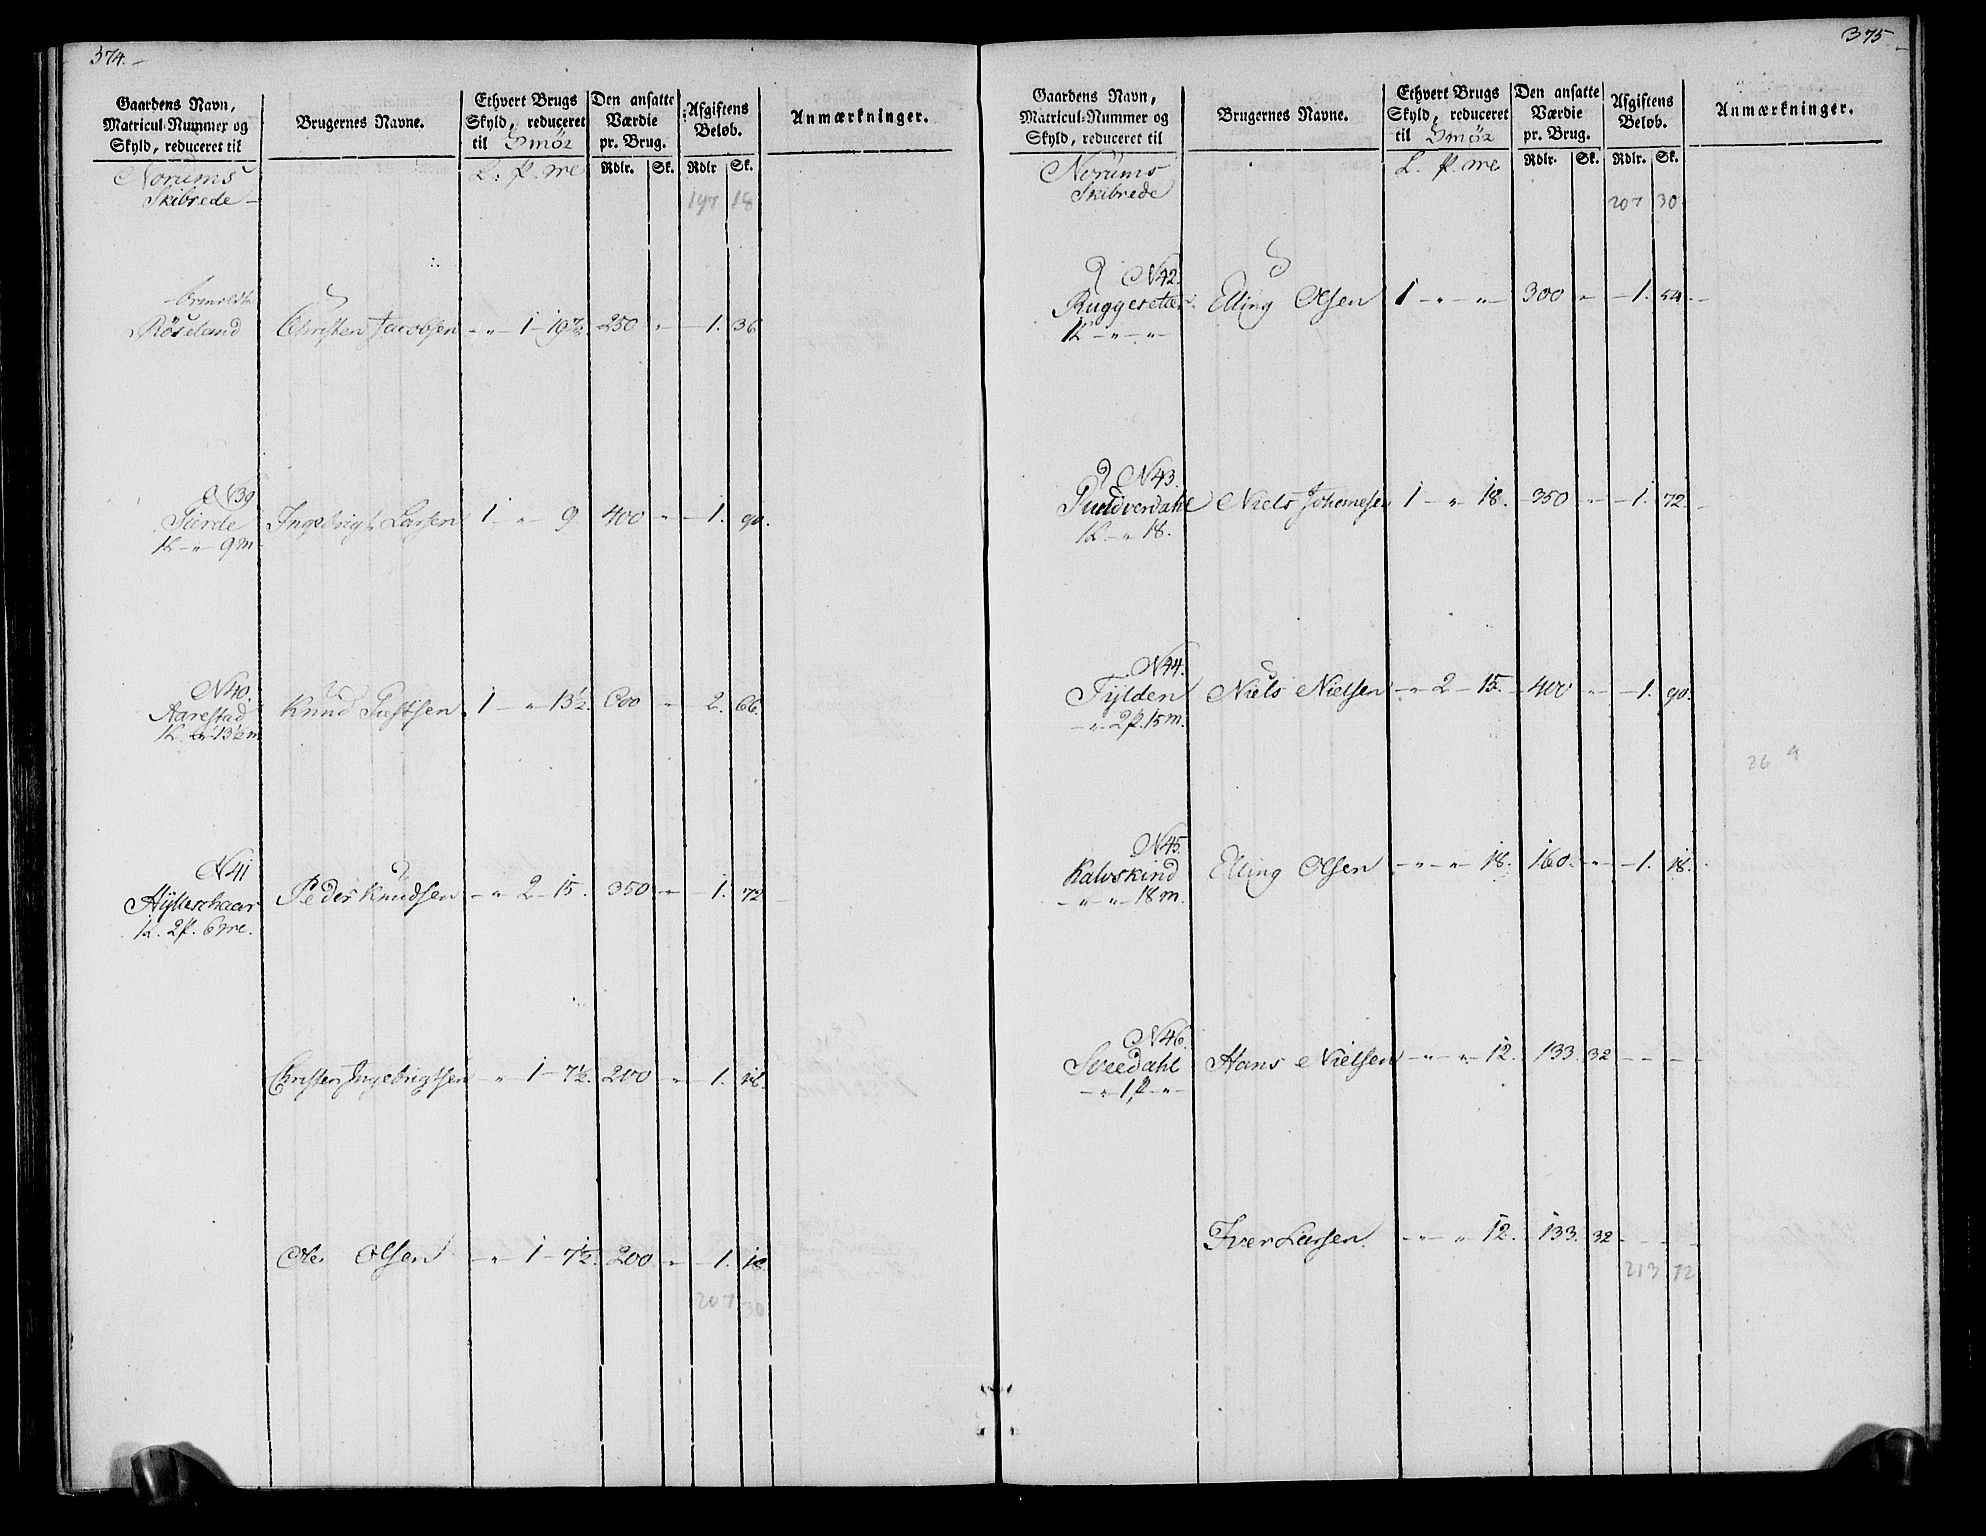 374.
Gaardens Navn, Matricul-Nummer og Skyld, reduceret til
Brugernes Navne.
Ethvert Brugs Skyld, reduceret til Smør
Den ansatte Værdie pr. Brug.
Afgiftens Beløb.
Anmærkninger.
Norums Skibrede
L. p. mr
Rdlr. Sk. Rdlr Sk.
197 18
Røseland Christen Jacobsen - " 1 - 19½ 250 " 1. 36
N 39
Tierde Ingebrigt Larsen 1 - " - 9. 400 " 1. 90.
1L - " - 9m
N 40.
Aarestad Knud Justsen 1 - " 13½. 600 " 2. 66.
1L. " 13½m
N 41
Hylleschaar Peder Knudsen - " 2 - 15. 350 " 1. 72
1L. 2p. 6mr.
Christen Ingebrigtsen - " 1 - 7½. 200 " 1. 18.
Ole Olsen - " 1 - 7½. 200 " 1. 18
207 30
375
Gaardens Navn, Matricul-Nummer og Skyld, reduceret til
Brugernes Navne.
Ethvert Brugs Skyld, reduceret til Smør
Den ansatte Værdie pr. Brug.
Afgiftens Beløb.
Anmærkninger.
Norums Skibrede
L. p. mr
Rdlr. Sk. Rdlr. Sk.
207 30
N 42.
Ruggesetter Elling Olsen 1 - " - " 300 " 1. 54
1L - " - "
N 43.
Pundverdahl Niels Johannesen 1 - " 18. 350 " 1. 72.
1L. - " 18.
N 44.
Tylden Niels Nielsen - " 2 - 15. 400 " 1. 90.
- " 2p. 15m.
26 9
N 45.
Kalvskind Elling Olsen - " - " 18. 160. " 1. 18.
- " - " 18m.
N 46.
Sveedahl Hans Nielsen - " - " 12. 133. 32 - - -
- " 1p. - "
Iver Larsen. - " - " 12. 133. 32 - - -
213 72